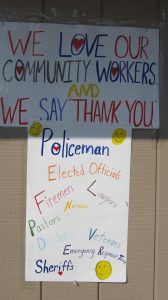 WE LOVE OUR
COMMUNITY WORKERS
AND
WE SAY "THANK YOU"
Policeman
Elected Officials
Firemen Lawyers
Nurses
Pastors
Doctors Veterans
Emergency Response Team
Sheriffs